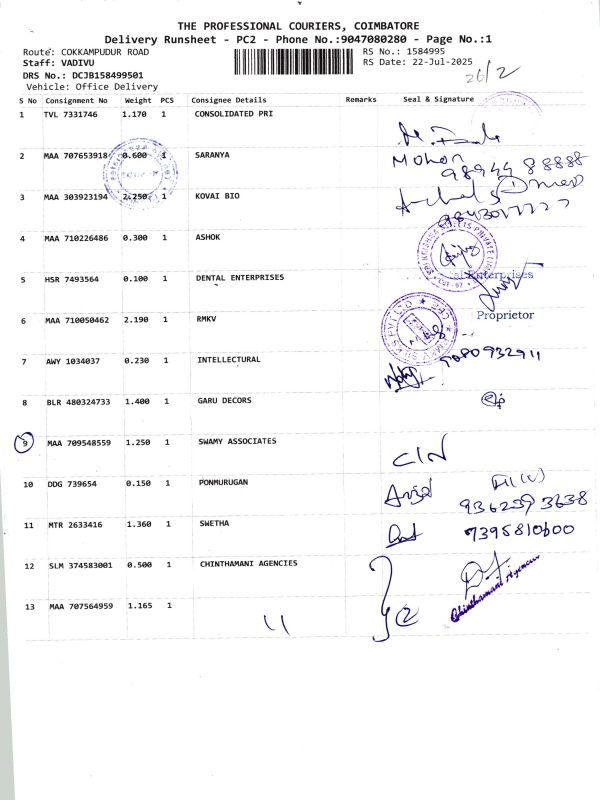 THE PROFESSIONAL COURIERS, COIMBATORE
Delivery Runsheet - PC2 - Phone No.:9047080280 - Page No.:1
Route: COKKAMPUDUR ROAD
RS No.: 1584995
Staff: VADIVU
RS Date: 22-Jul-2025
DRS No.: DCJB158499501
Vehicle: Office Delivery
26/2
S No Consignment No Weight PCS Consignee Details Remarks Seal & Signature
1 TVL 7331746 1.170 1 CONSOLIDATED PRI
2 MAA 707653918 0.600 1 SARANYA
Mohan
98944 88888
3 MAA 303923194 2.250 1 KOVAI BIO
4 MAA 710226486 0.300 1 ASHOK
5 HSR 7493564 0.100 1 DENTAL ENTERPRISES
Enterprises
6 MAA 710050462 2.190 1 RMKV
Proprietor
7 AWY 1034037 0.230 1 INTELLECTURAL
9080932911
8 BLR 480324733 1.400 1 GARU DECORS
9 MAA 709548559 1.250 1 SWAMY ASSOCIATES
C/N
10 DDG 739654 0.150 1 PONMURUGAN
9362393638
11 MTR 2633416 1.360 1 SWETHA
7395810600
12 SLM 374583001 0.500 1 CHINTHAMANI AGENCIES
Chinthamani Agencies
13 MAA 707564959 1.165 1
11
2